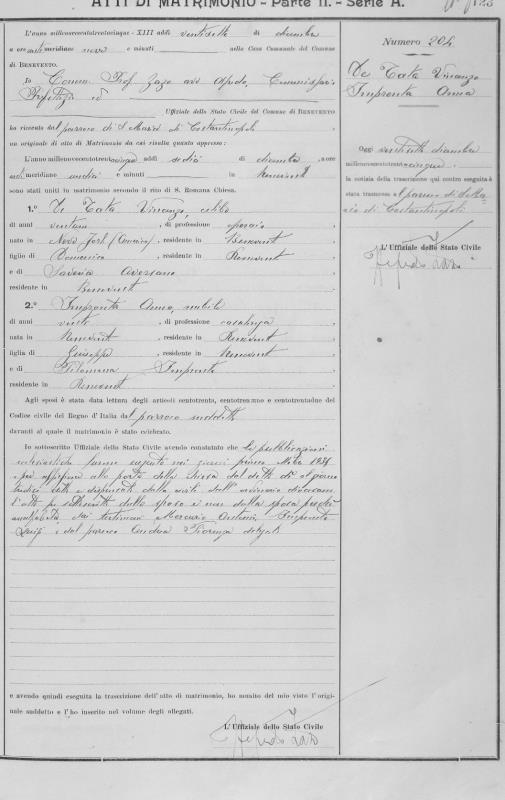 ATTI DI MATRIMONIO - Parte II. - Serie A.
L'anno millenovecentotrentacinque - XIII addì ventisette di dicembre
a ore antimeridiane nove e minuti nella Casa Comunale del Comune
di BENEVENTO.
Io Comm. Prof. Zazo avv Alfredo, Commissario
Prefettizio ed
Ufficiale dello Stato Civile del Comune di BENEVENTO
ho ricevuto dal parroco di S. Maria di Costantinopoli
un originale di atto di Matrimonio da cui risulta quanto appresso:
L'anno millenovecentotrentacinque addì sedici di dicembre, a ore
antimeridiane undici e minuti in Benevento
sono stati uniti in matrimonio secondo il rito di S. Romana Chiesa.
1.° De Tata Vincenzo, celibe
di anni ventuno, di professione
nato in New York (America), residente in Benevento
figlio di Domenico, residente in Benevento
e di Saveria Aversano
residente in Benevento
2.° Impronta Anna, nubile
di anni venti, di professione casalinga
nata in Benevento, residente in Benevento
figlia di Giuseppe, residente in Benevento
e di Filomena Impronta
residente in Benevento
Agli sposi è stata data lettura degli articoli centotrenta, centotrentuno e centotrentadue del
Codice civile del Regno d'Italia dal parroco suddetto
davanti al quale il matrimonio è stato celebrato.
Io sottoscritto Ufficiale dello Stato Civile avendo constatato che le pubblicazioni
ecclesiastiche furono eseguite nei giorni primo
e per affissione alla porta della Chiesa dal detto di al giorno
sedici detto e dispensati dalla civili dall' ordinario diocesano
l'atto fu sottoscritto dallo sposo e non dalla sposa perchè
analfabeta, dai testimoni Mercurio Antonio, Impronta
Luigi e dal parroco Andrea Fiorenza delegato
e avendo quindi eseguita la trascrizione dell'atto di matrimonio, ho munito del mio visto l'origi-
nale suddetto e l'ho inserito nel volume degli allegati.
L'Ufficiale dello Stato Civile
Alfredo Zazo
Numero 204
De Tata Vincenzo
Impronta Anna
Oggi ventisette dicembre
millenovecentotrentacinque
la notizia della trascrizione qui contro eseguita è
stata trasmessa al parroco di S. Ma
ria di Costantinopoli
L'Ufficiale dello Stato Civile
Alfredo Zazo